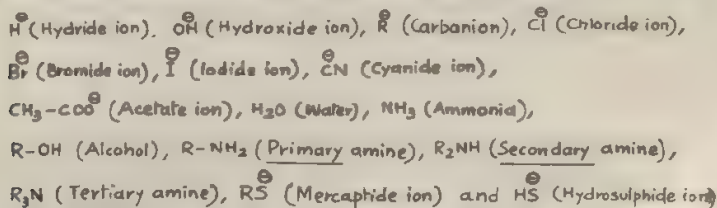 H⊖ (Hydride ion). OH⊖ (Hydroxide ion), R⊖ (Carbanion), Cl⊖ (Chloride ion),
Br⊖ (Bromide ion), I⊖ (Iodide ion), CN⊖ (Cyanide ion),
CH₃-COO⊖ (Acetate ion), H₂O (Water), NH₃ (Ammonia),
R-OH (Alcohol), R-NH₂ (Primary amine), R₂NH (Secondary amine),
R₃N (Tertiary amine), RS⊖ (Mercaptide ion) and HS⊖ (Hydrosulphide ion)